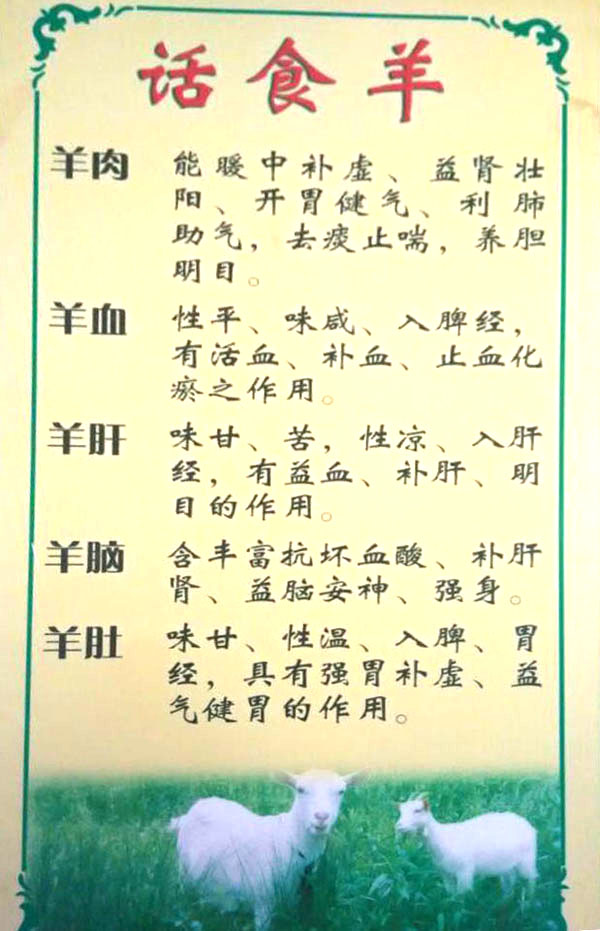 话食羊
羊肉
能暖中补虚、益肾壮
阳、开胃健气、利肺
助气，去痰止喘，养胆
明目。
羊血
性平、味咸、入脾经，
有活血、补血、止血化
瘀之作用。
羊肝
味甘、苦，性凉、入肝
经，有益血、补肝、明
目的作用。
羊脑
含丰富抗坏血酸、补肝
肾、益脑安神、强身。
羊肚
味甘、性温、入脾、胃
经，具有强胃补虚、益
气健胃的作用。